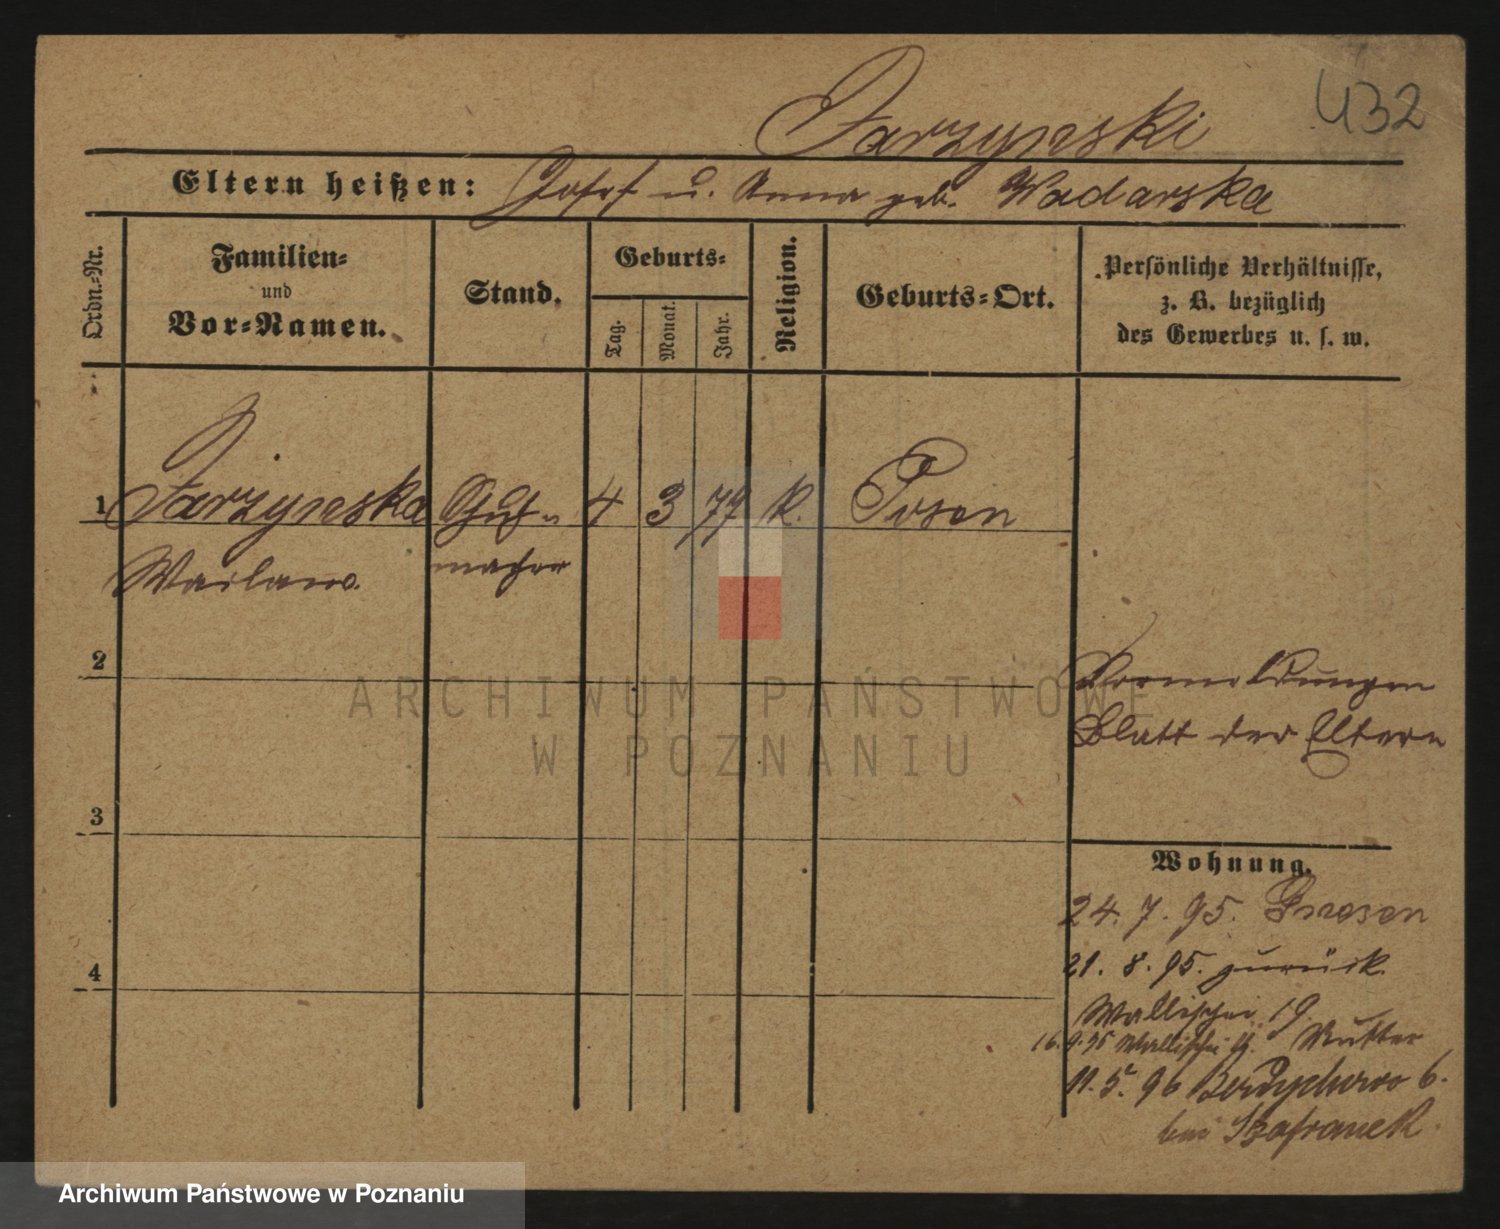 432
Jarzynski
Eltern heißen: Josef u. Anna geb. Wadarska
Ordn.-Nr.
Familien-
und
Vor-Namen.
Stand.
Geburts-
Tag.
Monat.
Jahr.
Religion.
Geburts-Ort.
Persönliche Verhältnisse,
z. B. bezüglich
des Gewerbes u. s. w.
1 Jarzynska Hut- 4 3 79 K. Posen
macher
2
Vermeldungen
Blatt der Eltern
3
Wohnung.
24. 7. 95. Gnesen
4
21. 8. 95. zurück
Wallischei 19.
16. 9. 95 Wallischei Mutter
11. 5. 96 Berdychowo 6.
bei Szafranek.
ARCHIWUM PAŃSTWOWE
W POZNANIU
Archiwum Państwowe w Poznaniu